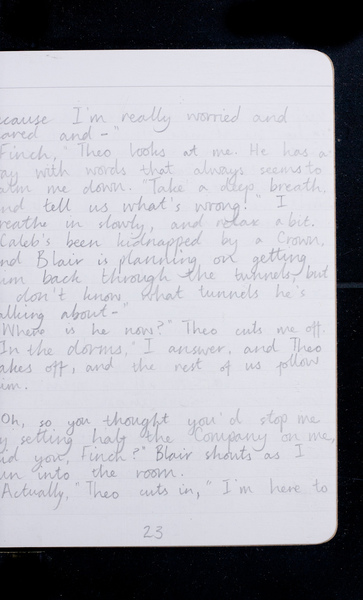 ecause I'm really worried and
ared and -"
Finch,' Theo looks at me. He has a
ay with words that always seems to
alm me down. "Take a deep breath,
nd tell us what's wrong." I
reathe in slowly, and relax a bit.
Caleb's been kidnapped by a Crown,
nd Blair is planning on getting
him back through the tunnels, but
don't know what tunnels he's
alking about -"
Where is he now?" Theo cuts me off.
In the dorms,' I answer, and Theo
akes off, and the rest of us follow
im.
Oh, so you thought you'd stop me
y setting half the Company on me,
id you, Finch?" Blair shouts as I
un into the room.
Actually," Theo cuts in, "I'm here to
23